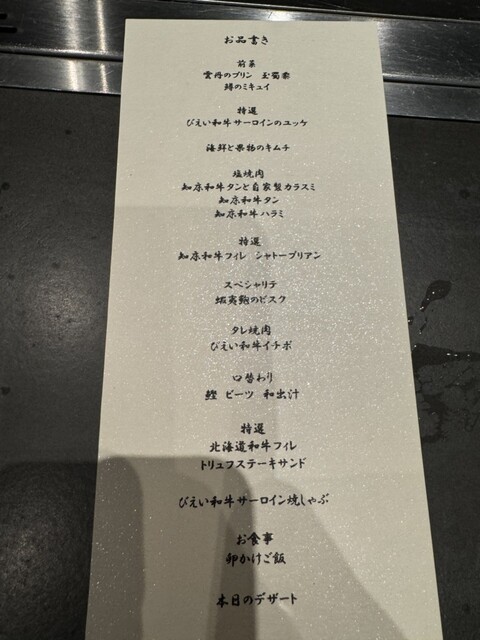 お品書き
前菜
雲丹のプリン 玉蜀黍
鱒のミキュイ
特選
びえい和牛サーロインのユッケ
海鮮と果物のキムチ
塩焼肉
知床和牛タンと自家製カラスミ
知床和牛タン
知床和牛ハラミ
特選
知床和牛フィレ シャトーブリアン
スペシャリテ
蝦夷鮑のビスク
タレ焼肉
びえい和牛イチボ
口替わり
鰹 ビーツ 和出汁
特選
北海道和牛フィレ
トリュフステーキサンド
びえい和牛サーロイン焼しゃぶ
お食事
卵かけご飯
本日のデザート